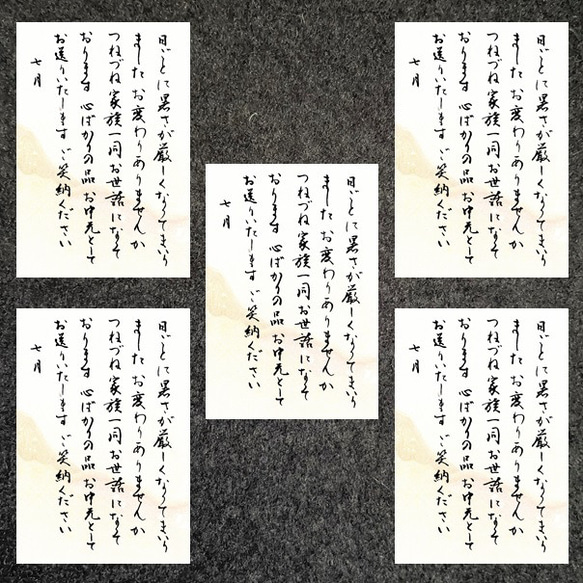 日ごとに暑さが厳しくなってまいり
ました お変わりありませんか
つねづね家族一同お世話になって
おります 心ばかりの品 お中元として
お送りいたします ご笑納ください
七月
日ごとに暑さが厳しくなってまいり
ました お変わりありませんか
つねづね家族一同お世話になって
おります 心ばかりの品 お中元として
お送りいたします ご笑納ください
七月
日ごとに暑さが厳しくなってまいり
ました お変わりありませんか
つねづね家族一同お世話になって
おります 心ばかりの品 お中元として
お送りいたします ご笑納ください
七月
日ごとに暑さが厳しくなってまいり
ました お変わりありませんか
つねづね家族一同お世話になって
おります 心ばかりの品 お中元として
お送りいたします ご笑納ください
七月
日ごとに暑さが厳しくなってまいり
ました お変わりありませんか
つねづね家族一同お世話になって
おります 心ばかりの品 お中元として
お送りいたします ご笑納ください
七月